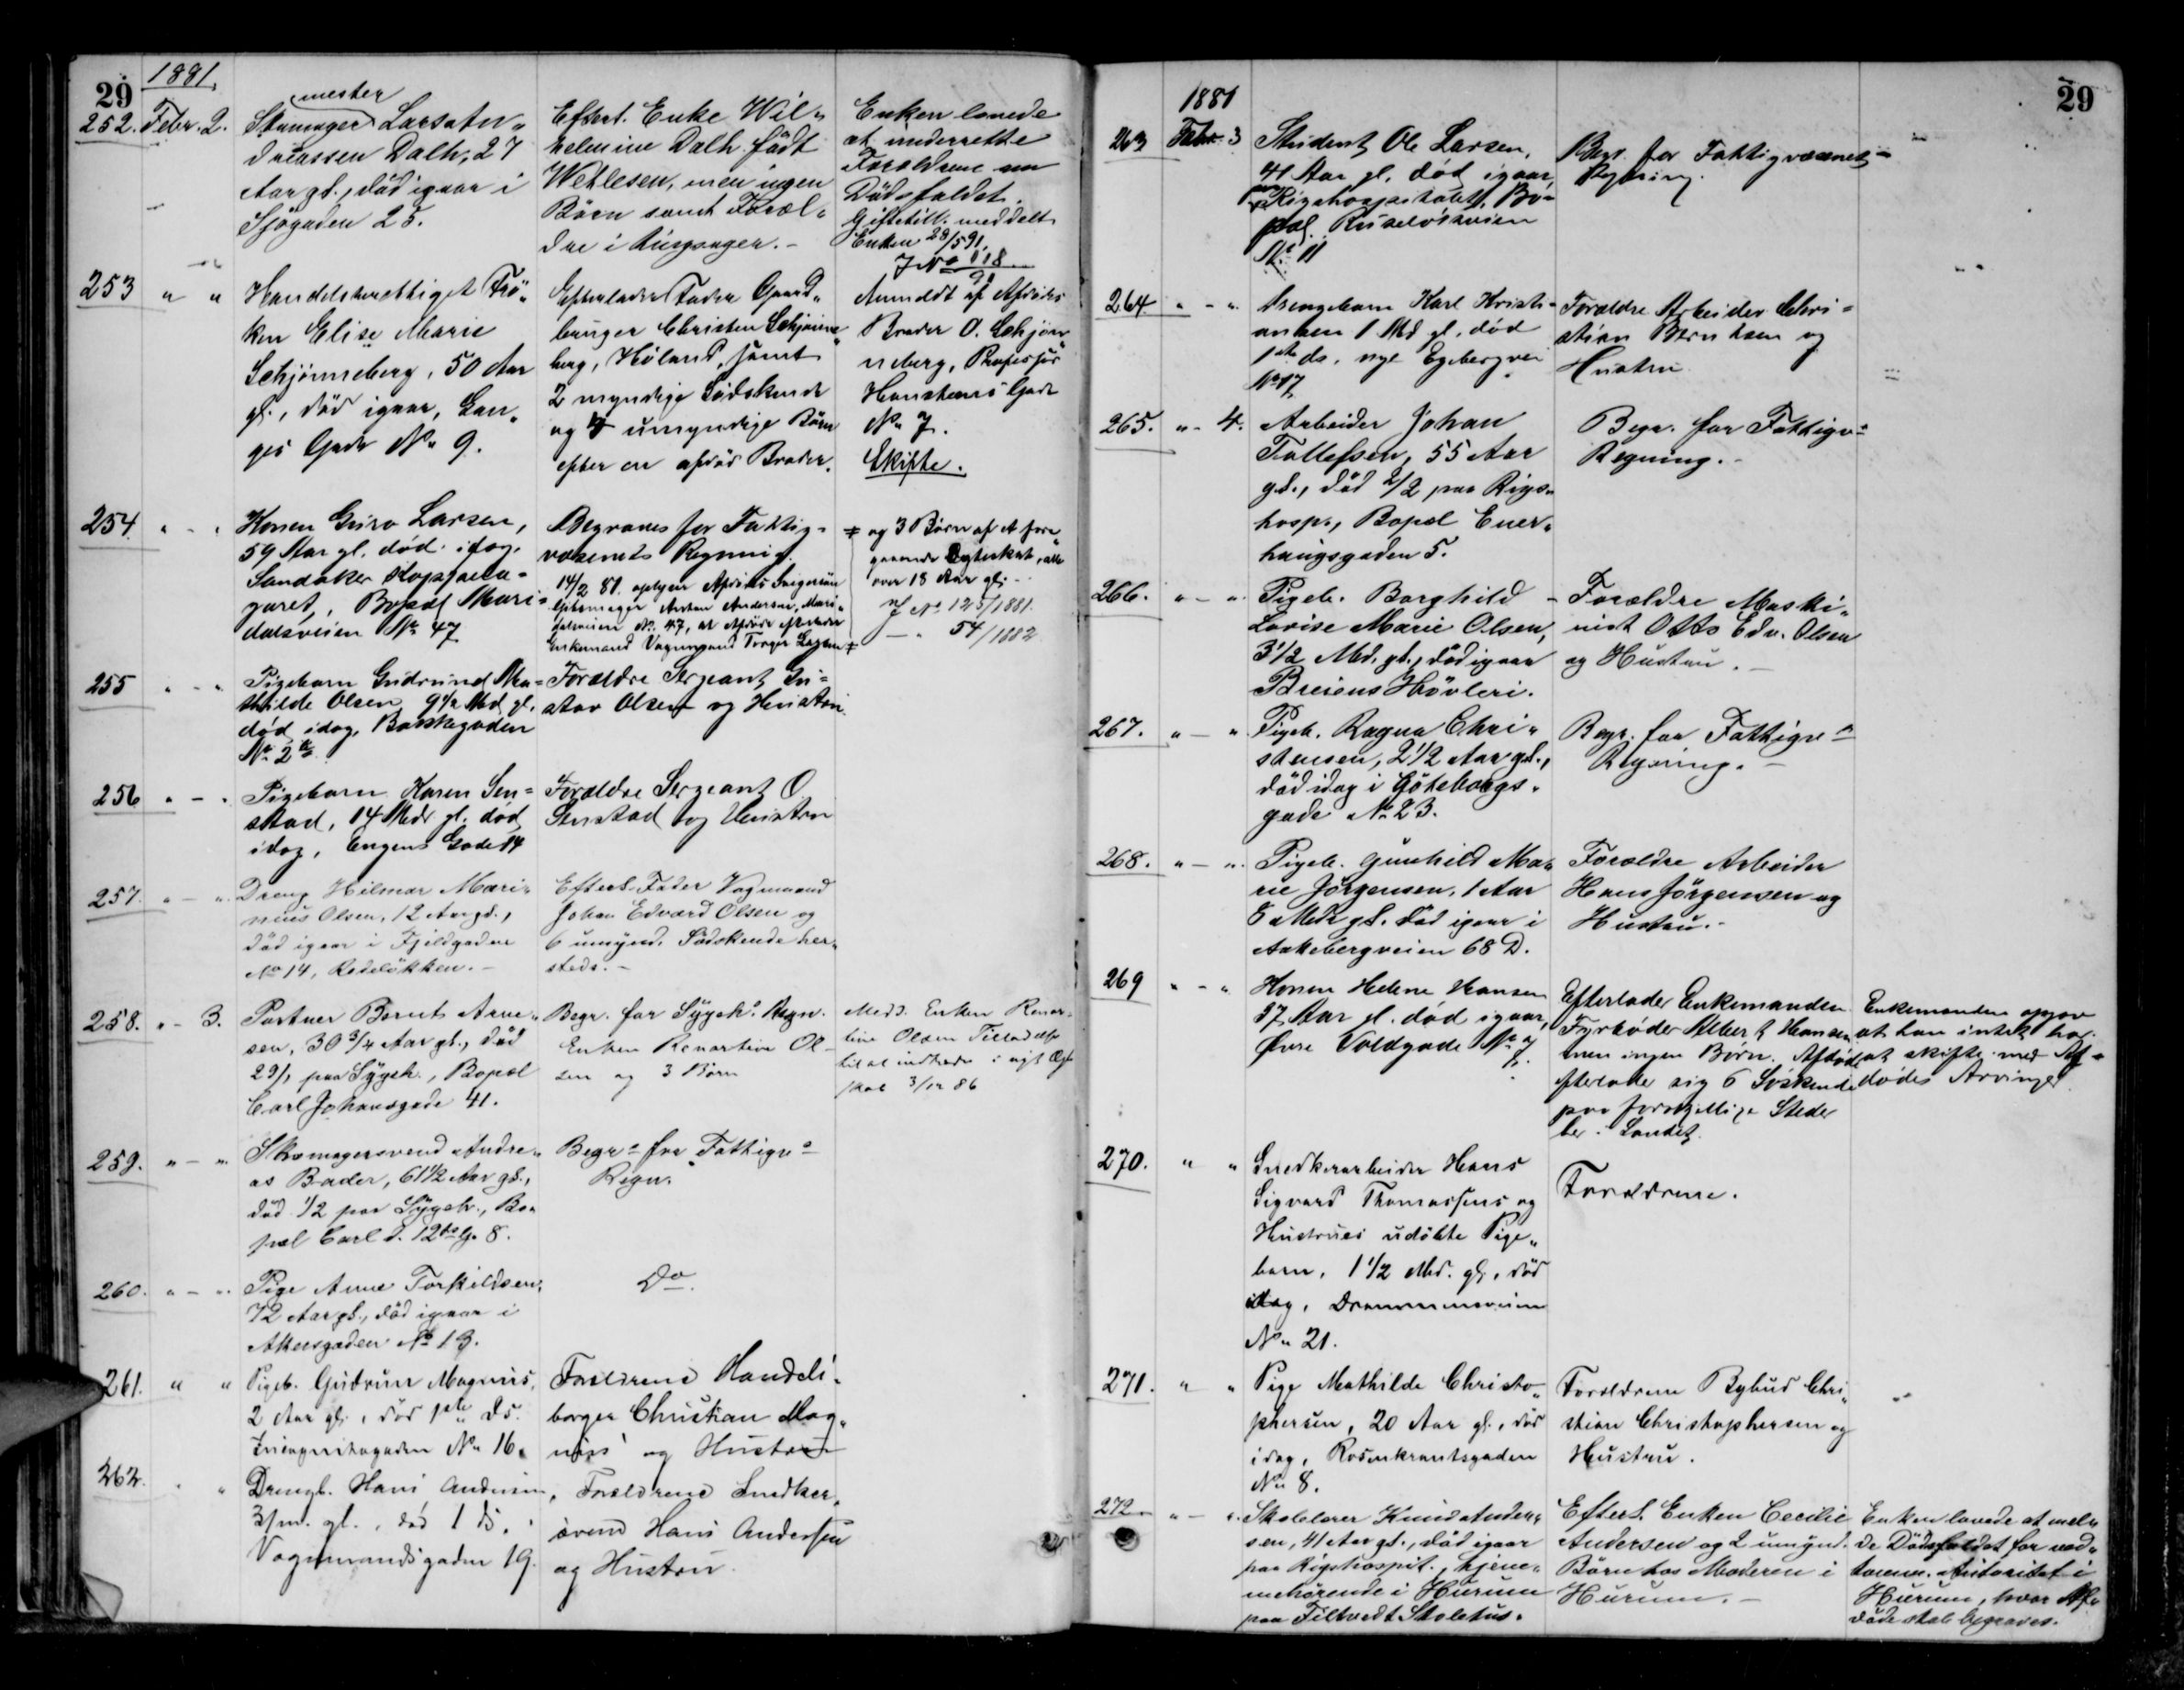 29
1881
252. Febr. 2.
mester
Lars An„
dreassen Dalh, 27
Aar gl., død igaar i
Sjøgaden 25.
Efterl. Enke Wil„
helmine Dalh født
Wetlesen, men ingen
Børn samt Foræl„
dre i Ringsager. -
Enken lovede
at underrette
Forældrene om
Dødsfaldet.
Giftetill. meddelt
Enken 28/5 91.
J No 118
91
253 „ „
Handelsberettiget Frø„
ken Elise Marie
Schjønneberg, 50 Aar
gl., død igaar, Lan„
ges Gade No 9.
Efterlader Fader Gaard„
bruger Christen Schjønne„
berg, Høland, samt
2 myndige Sødskende
og 4 umyndige Børn
efter en afdød Broder.
Anmeldt af Afdødes
Broder O. Schjøn„
neberg, Professor
Hansteens Gade
No 7.
Skifte.
254 „ - „
Konen Guro Larsen,
59 Aar gl. død idag.
Sandaker
Bopæl Mari=
dalsveien No 47
Begraves for Fattig=
væsenets Regning.
14/2 81. oplyser Afdødes Svigersøn
Anton Andersen, Mari„
dalsveien No 47, at Afdøde efterlader
Enkemand Vognmand Torger Larsen ≠
≠ og 3 Børn af et fore„
gaaende Ægteskab, alle
over 18 Aar gl. -
J No 125/1881.
- „ 54/1882
255 „ - „
Pigebarn Gudrund Ma=
thilde Olsen 9 1/2 Md. gl.
død idag, Bakkegaden
No 2 b
Forældre Sergeant Gu=
stav Olsen og Hustru.
256 „ - „
Pigebarn Karen Sen=
stad, 14 Mdr gl. død
idag, Engens Gade 14
Forældre Sergeant O.
Senstad og Hustru
257. „ - „
Dreng Hilmar Mari„
nius Olsen, 12 Aar gl.,
død igaar i Fjeldgaden
No 14, Rodeløkken. -
Efterl. Fader Vognmand
Johan Edvard Olsen og
6 umynd. Sødskende her„
steds. -
258. „ - 3.
Portner Bernt Arne„
sen, 30 3/4 Aar gl., død
29/1 paa Sygeh., Bopæl
Carl Johansgade 41.
Begr. for Sygeh. Regn.
Enken Renartine Ol-
sen og 3 Børn
Medd. Enken Renar-
tine Olsen Tilladelse
til at indtræde i nyt Ægte
skab 3/12 86
259. „ - „
Skomagersvend Andre„
as Bader, 61 1/2 Aar gl.,
død 1/2 paa Sygeh., Bo„
pæl Carl d. 12tes G. 8.
Begr. for Fattigv.
Regn.
260. „ - „
Pige Anne Torkildsen,
72 Aar gl., død igaar i
Akersgaden No 13.
Do.
261. „ „
Pigeb. Gudrun Magnus,
2 Aar gl., død 1ste ds.
No 16.
Forældrene Handels„
borger Christian Mag„
nus og Hustru
262. „ „
Drengb. Hans Andersen,
3/m. gl., død 1 ds.
Vognmandsgaden 19.
Forældrene Snedker„
svend Hans Andersen
og Hustru.
29
1881
263 Febr. 3
Student Ole Larsen,
41 Aar gl. død igaar
paa Rigshospitalet, Bo=
pæl Ruseløkveien
No 11
Begr. for Fattigvæsenets
Regning.
264. „ - „
Drengebarn Karl Kristi=
ansen 1 Md gl. død
1ste ds. nye Egebergvei
No 17
Forældre Arbeider Chri=
stian Berntsen og
Hustru
265. „ - 4.
Arbeider Johan
Tollefsen, 55 Aar
gl., død 2/2 paa Rigs„
hosp., Bopæl Ener„
haugsgaden 5.
Begr. for Fattigv.
Regning. -
266. „ - „
Pigeb. Borghild
Lovise Marie Olsen,
3 1/2 Md. gl., død igaar
Breiens Høvleri.
Forældre Maski„
nist Otto Edv. Olsen
og Hustru. -
267. „ - „
Pigeb. Ragna Chri„
stensen, 2 1/2 Aar gl.,
død idag i Göteborgs„
gade No 23.
Begr. for Fattigv.
Regning. -
268. „ - „
Pigeb. Gunhild Ma„
rie Jørgensen, 1 Aar
8 Mdr gl. død igaar i
Aakebergveien 68 D.
Forældre Arbeider
Hans Jørgensen og
Hustru. -
269 „ - „
Konen Helene Hansen
37 Aar gl. død igaar,
Øvre Voldgade No 7.
Efterlader Enkemanden
Fyrbøder Albert Hansen
men ingen Børn. Afdøde
efterlader sig 6 Søskende
paa forskjellige Steder
her i Landet.
Enkemanden opgav
at han intet har
at skifte med Af=
dødes Arvinger
270. „ „
Snedkerarbeider Hans
Sigvard Thomassens og
Hustrues udøbte Pige„
barn, 1 1/2 Md. gl., død
idag, Drammensveien
No 21.
Forældrene.
271. „ „
Pige Mathilde Christo„
phersen, 20 Aar gl., død
idag, Rosenkrantsgaden
No 8.
Forældrene Bybud Chri„
stian Christophersen og
Hustru.
272 „ - „
Skolelærer Knud Ander„
sen, 41 Aar gl., død igaar
paa Rigshospit., hjem„
mehørende i Hurum
paa Filtvedt Skolehus.
Efterl. Enken Cecilie
Andersen og 2 umynd.
Børn hos Moderen i
Hurum. -
Enken lovede at mel„
de Dødsfaldet for ved„
komm. Autoritet i
Hurum, hvor Af„
døde skal begraves.